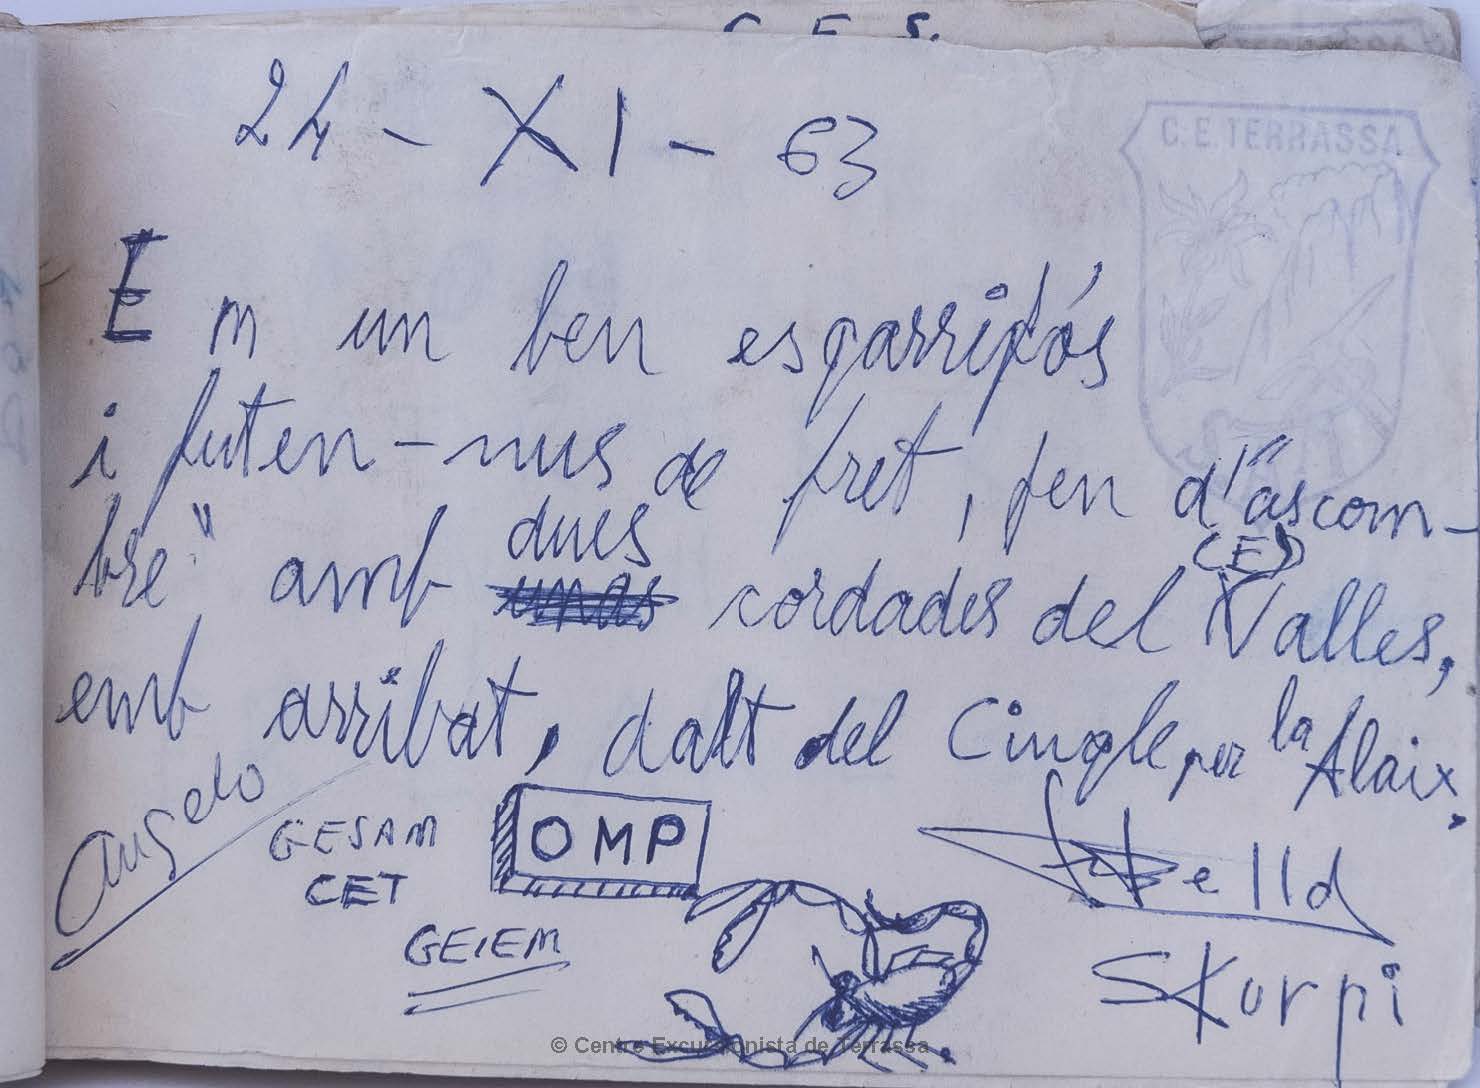 C. E. S.
24 - XI - 63
C.E. TERRASSA
Em un ben esgarrifós
i futen-nus de fret, fen d'"ascom-
bre" amb dues cordades del Valles,
(E)
emb arribat, dalt del Cingle per la Alaix.
Angelo
GESAM
CET
GEIEM
OMP
Skorpi
© Centre Excursionista de Terrassa